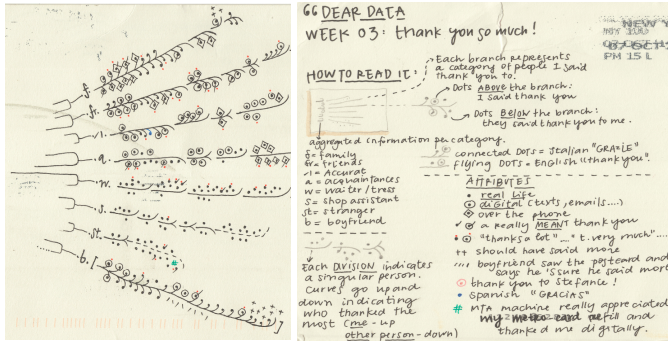 f.
fr.
a.
w.
s.
st.
b.
#
DEAR DATA
WEEK 03: thank you so much!
NEW Y
PM 15 L
Each branch represents
a category of people I said
thank you to.
HOW TO READ IT:
Dots ABOVE the branch:
I said thank you
Dots BELOW the branch:
they said thank you to me.
aggregated information per category.
f = family
fr = friends
= Accurat
a = acquaintances
w = waiter/tress
s = shop assistant
st = stranger
b = boyfriend
connected DOTS = Italian "GRAZIE"
flying DOTS = English "thank you".
ATTRIBUTES
real Life
digital (texts, emails....)
over the phone
a really MEANT thank you
"thanks a lot"...." t. very much"....
++ should have said more
boyfriend saw the postcard and
says he's sure he said more
thank you to Stefanie!
Spanish "GRACIAS"
# MTA machine really appreciated
my metro card refill and
thanked me digitally.
Each DIVISION indicates
a singular person.
Curves go up and
down indicating
who thanked the
most (me-up
other person-down)